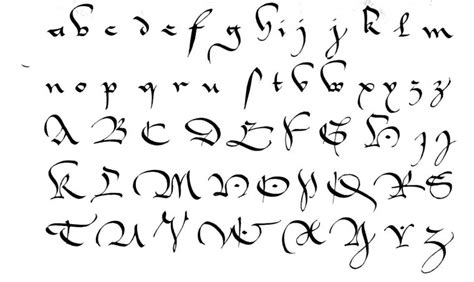 a b c d e f g h i j j k l m
n o p q r u ſ t v w x y z z
A B C D E F G H J J
K L M N O P Q R S
T U V W X Y Y Z